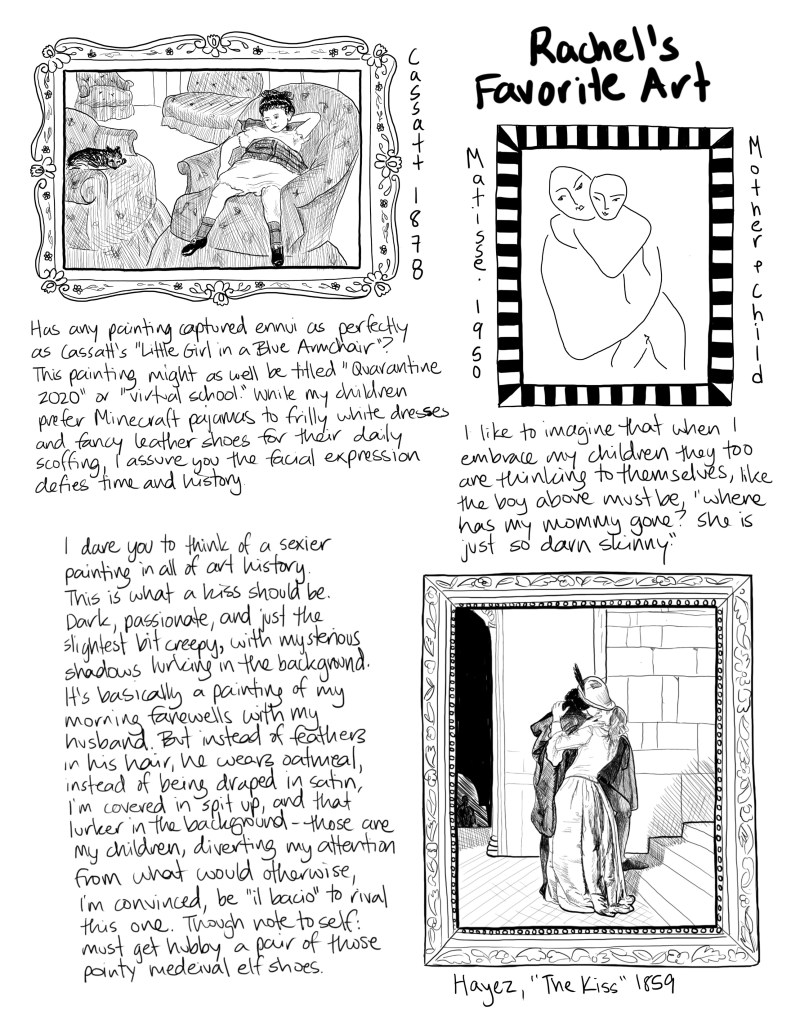 Rachel's
Favorite Art
Cassatt 1878
Has any painting captured ennui as perfectly
as Cassatt's "Little Girl in a Blue Armchair"?
This painting might as well be titled "Quarantine
2020" or "virtual school." While my children
prefer Minecraft pajamas to frilly white dresses
and fancy leather shoes for their daily
scoffing, I assure you the facial expression
defies time and history.
Matisse. 1950
Mother & Child
I like to imagine that when I
embrace my children they too
are thinking to themselves, like
the boy above must be, "where
has my mommy gone? She is
just so darn skinny."
I dare you to think of a sexier
painting in all of art history.
This is what a kiss should be.
Dark, passionate, and just the
slightest bit creepy, with mysterious
shadows lurking in the background.
It's basically a painting of my
morning farewells with my
husband. But instead of feathers
in his hair, he wears oatmeal,
instead of being draped in satin,
I'm covered in spit up, and that
lurker in the background-those are
my children, diverting my attention
from what would otherwise,
I'm convinced, be "il bacio" to rival
this one. Though note to self:
must get hubby a pair of those
pointy medeival elf shoes.
Hayez, "The Kiss" 1859